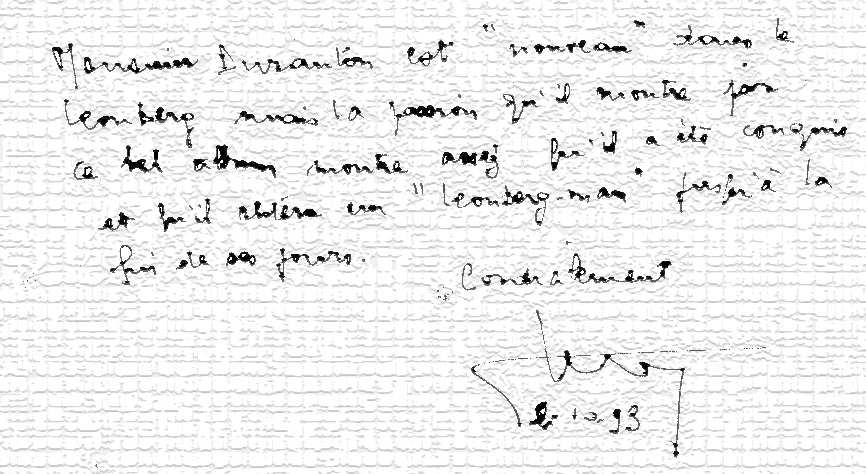 Monsieur Duranton est "nouveau" dans le
Leonberg mais la passion qu'il montre par
ce bel album montre assez qu'il a été conquis
et qu'il restera un "leonberg-man" jusqu'à la
fin de ses jours.
Cordialement
10.93